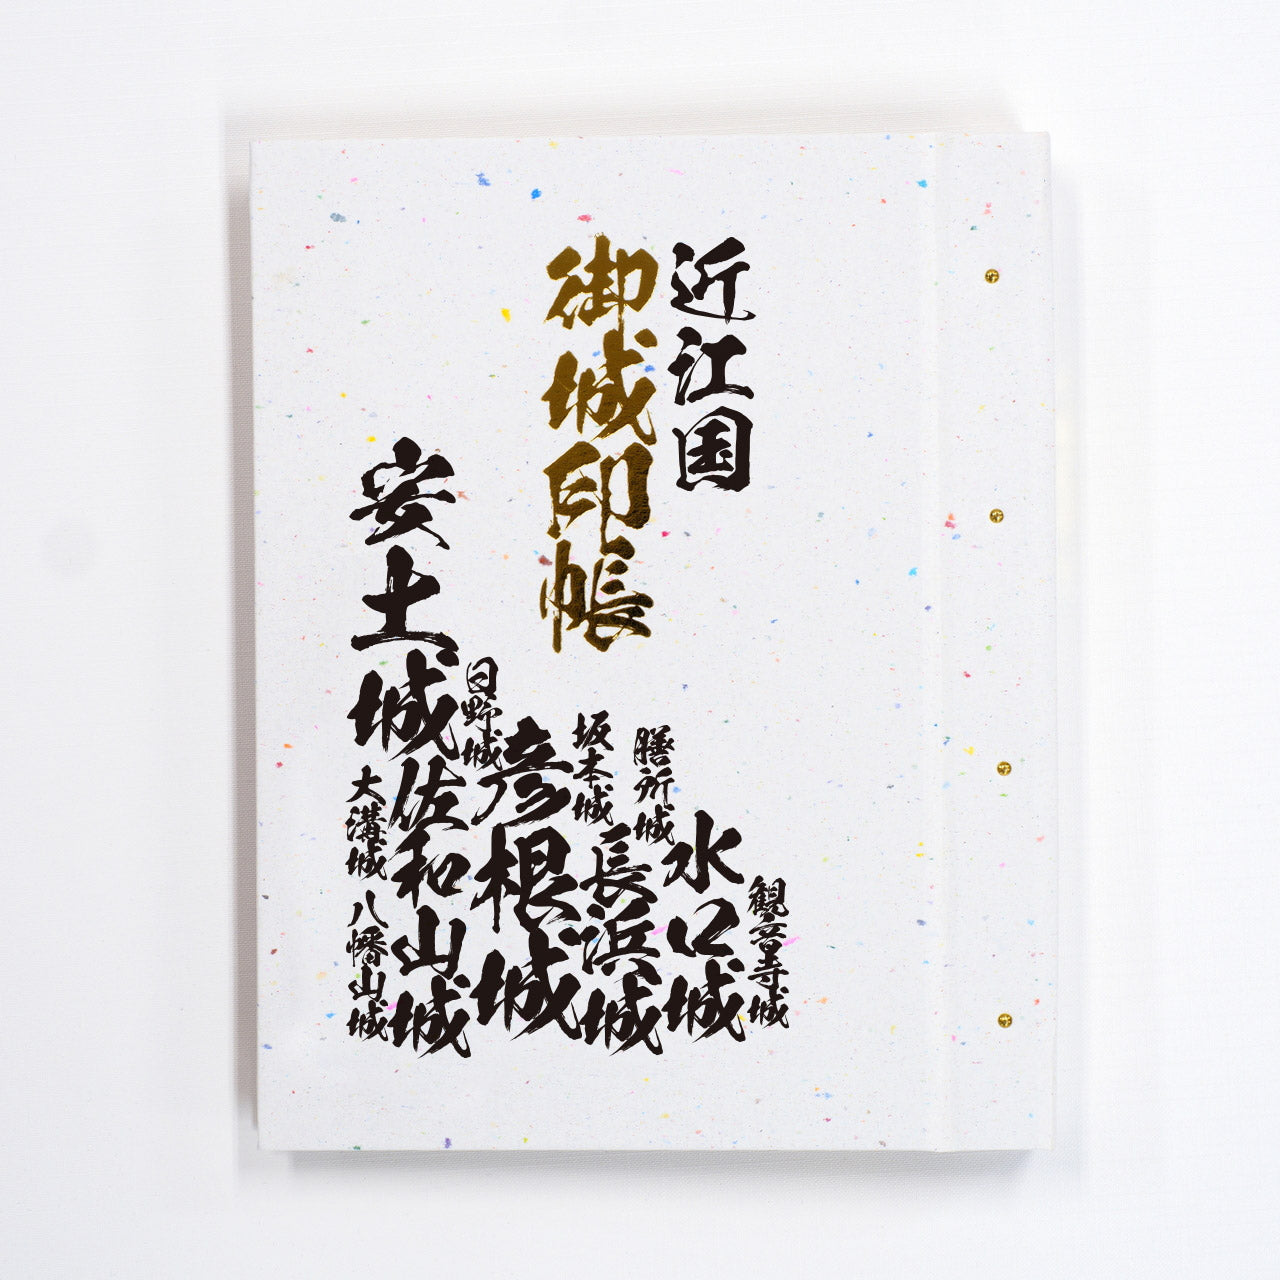 近江国
御城印帳
観音寺城
水口城
膳所城
長浜城
坂本城
彦根城
日野城
安土城
佐和山城
大溝城
八幡山城